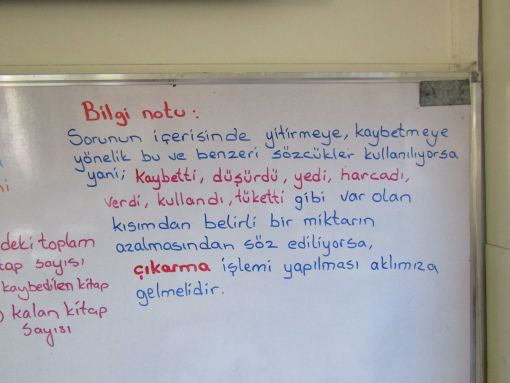 Bilgi notu:
Sorunun içerisinde yitirmeye, kaybetmeye
yönelik bu ve benzeri sözcükler kullanılıyorsa
yani; kaybetti, düşürdü, yedi, harcadı,
verdi, kullandı, tüketti gibi var olan
kısımdan belirli bir miktarın
azalmasından söz ediliyorsa,
çıkarma işlemi yapılması aklımıza
gelmelidir.
deki toplam
tap sayısı
kaybedilen kitap
kalan kitap
sayısı